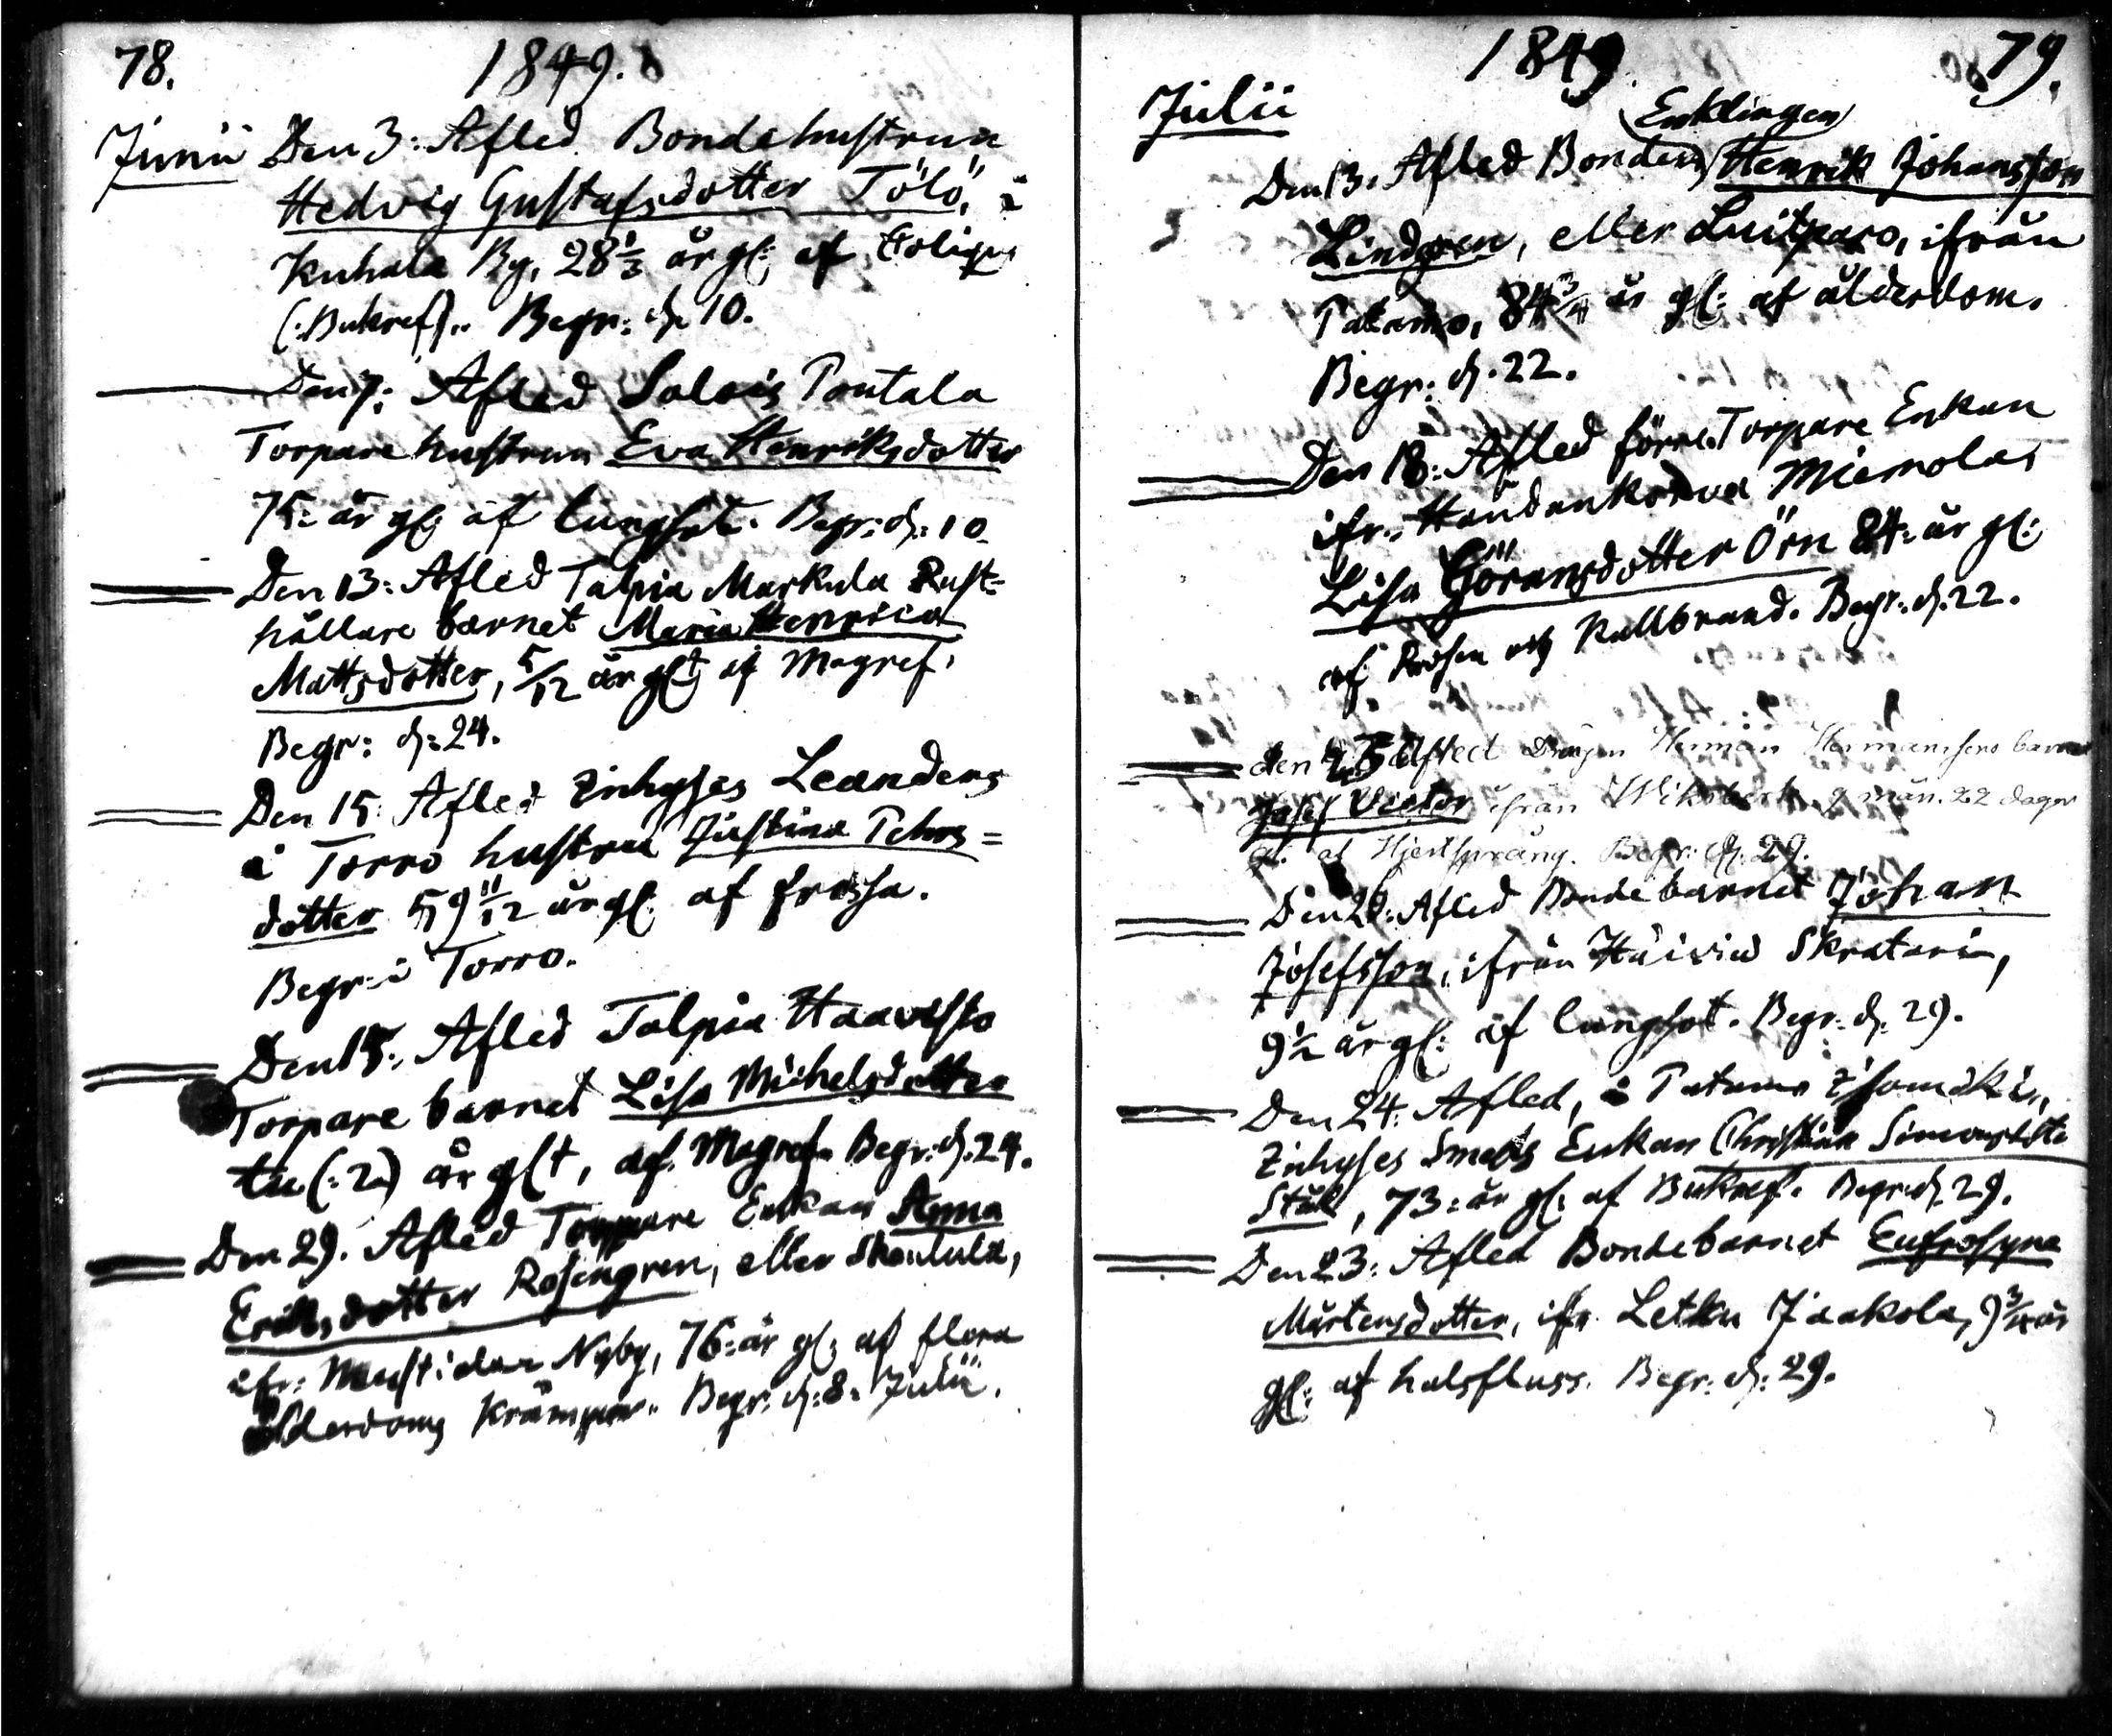 78.
1849.
Junii Den 3: Afled Bondehustrun
Hedvig Gustafsdotter Tölö, i
Kuhala By, 28 1/3 år gl: af Colique
(:Bukref). Begr: d. 10.
Den 7: Afled Salois Pontala
Torpare hustrun Eva Henriksdotter
75: år gl: af lungsot. Begr: d: 10
Den 13: Afled Talpia Markula Rust=
hållare barnet Maria Henrica
Mattsdotter, 5/12 år glt af Magref.
Begr: d: 24.
Den 15: Afled Inhyses Leanders
i Torro hustru Justina Pehrs=
dotter 59 11/12 år gl: af frossa.
Begr: i Torro.
Den 15: Afled Talpia Haavisto
Torpare barnet Lisa Michelsdotter
tu (:2) år glt, af Magref. Begr: d. 24.
Den 29. Afled Torpare Enkan Anna
Ericksdotter Rosengren, eller
ifr: Mustiala Nyby, 76: år gl: af flera
ålderdoms krämpor. Begr: d: 8. Julii.
1849
79.
Julii
Enklingen
Den 13. Afled Bonden Henrik Johansson
Lindgren, eller ifrån
84 3/4 år gl: af ålderdom.
Begr: d. 22.
Den 18: Afled förre Torpare Enkan
ifr. Miemolas
Lisa Göransdotter Örn 84: år gl:
af Rosen och Kallbrand. Begr: d. 22.
den Afled Drängen Herman Hermanssons barn
Josef Victor ifrån 9 mån. 22 dagar
gl. af Hjertsprång. Begr: d. 29.
Den 20: Afled Bondebarnet Johan
Josefsson, ifrån Skratari,
9 1/2 år gl: af lungsot. Begr: d. 29.
Den 24: Afled, i
Inhyses Smeds Enkan Christina Simonsdotter
Stål, 73: år gl: af Bukref. Begr: d. 29.
Den 23: Afled Bondebarnet Eufrosyne
Mårtensdotter, ifr. Letku Jaakola, 9 3/4 år
gl: af halsfluss. Begr: d: 29.